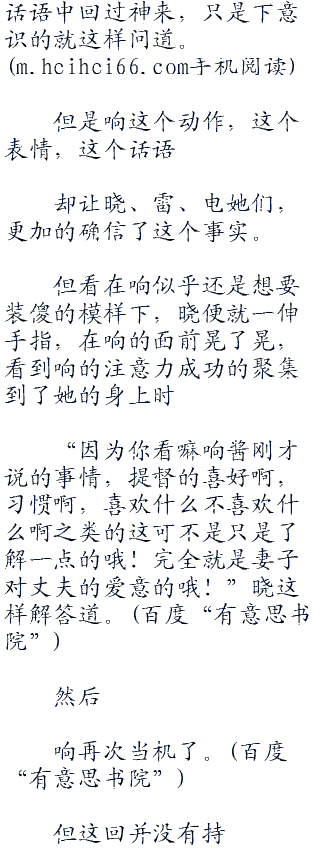 话语中回过神来，只是下意
识的就这样问道。
(m.hcihci66.com手机阅读)
但是响这个动作，这个
表情，这个话语
却让晓、雷、电她们，
更加的确信了这个事实。
但看在响似乎还是想要
装傻的模样下，晓便就一伸
手指，在响的面前晃了晃，
看到响的注意力成功的聚集
到了她的身上时
“因为你看嘛响酱刚才
说的事情，提督的喜好啊，
习惯啊，喜欢什么不喜欢什
么啊之类的这可不是只是了
解一点的哦！完全就是妻子
对丈夫的爱意的哦！”晓这
样解答道。(百度“有意思书
院”)
然后
响再次当机了。(百度
“有意思书院”)
但这回并没有持